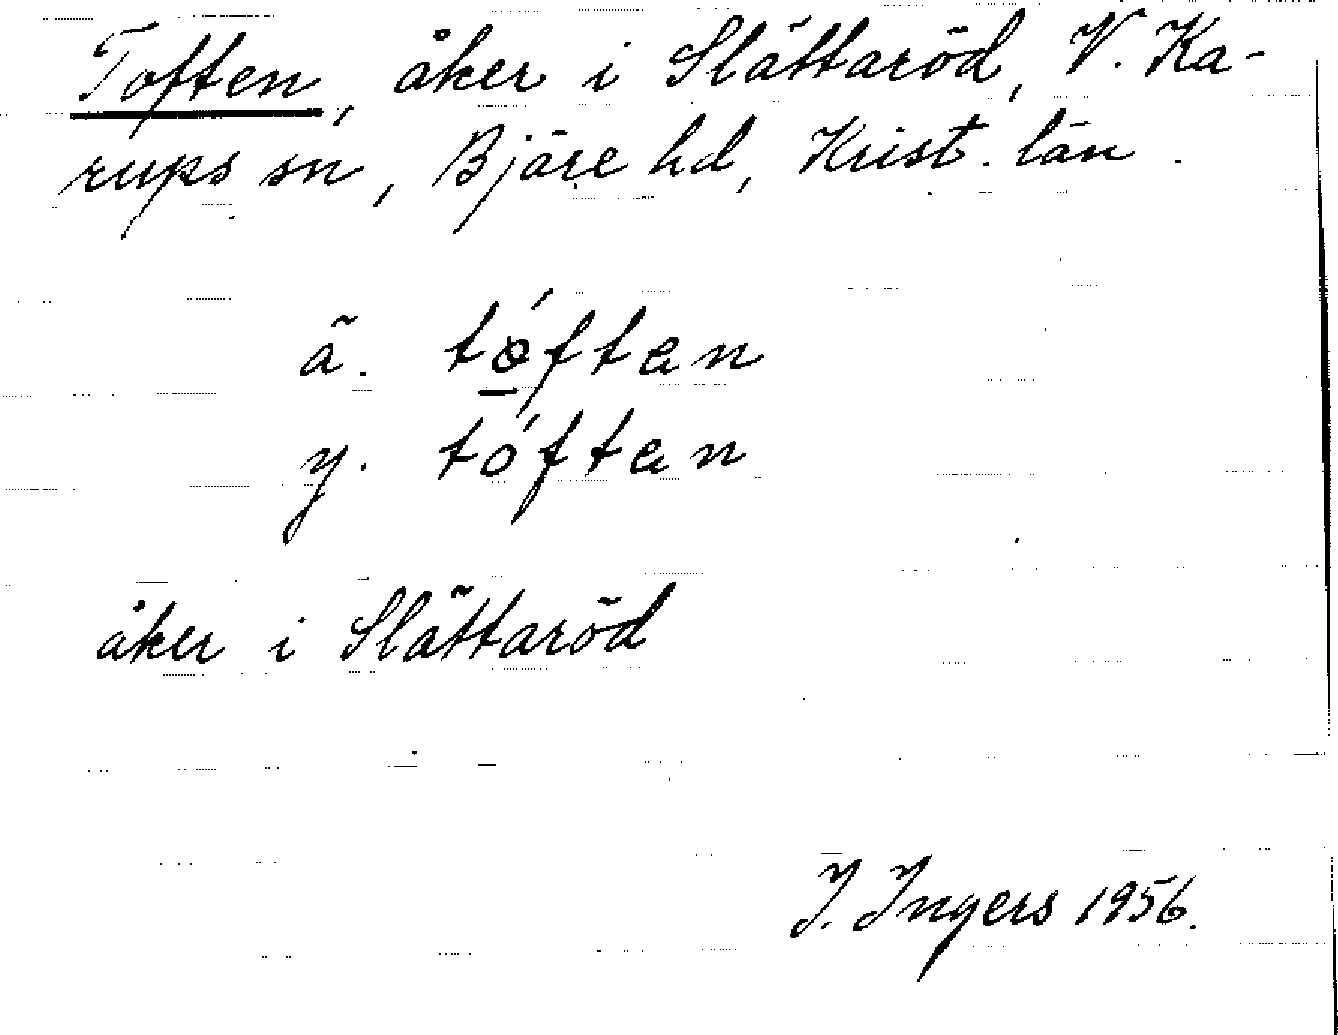 Toften, åker i Slättaröd, V. Ka-
rups sn, Bjäre hd, Krist. län.
ä. tóftan
y. tóftan
åker i Slättaröd
I. Ingers 1956.